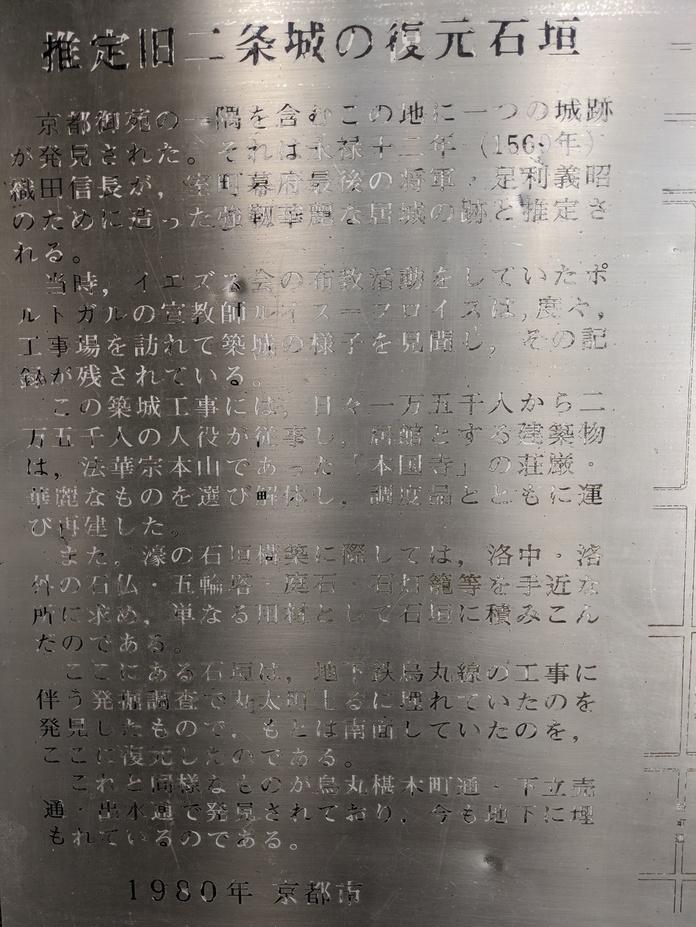 推定旧二条城の復元石垣
京都御苑の一隅を含むこの地に一つの城跡
が発見された。それは永禄十二年（1569年）
織田信長が，室町幕府最後の将軍・足利義昭
のために造った強靱華麗な居城の跡と推定さ
れる。
当時，イエズス会の布教活動をしていたポ
ルトガルの宣教師ルイス＝フロイスは，度々，
工事場を訪れて築城の様子を見聞し，その記
録が残されている。
この築城工事には，日々一万五千人から二
万五千人の人役が従事し，居館とする建築物
は，法華宗本山であった「本国寺」の荘厳・
華麗なものを選び解体し，調度品とともに運
び再建した。
また，濠の石垣構築に際しては，洛中・洛
外の石仏・五輪塔・庭石・石灯籠等を手近な
所に求め，単なる用材として石垣に積みこん
だのである。
ここにある石垣は，地下鉄烏丸線の工事に
伴う発掘調査で丸太町上るに埋れていたのを
発見したもので，もとは南面していたのを，
ここに復元したのである。
これと同様なものが烏丸椹木町通・下立売
通・出水通で発見されており，今も地下に埋
もれているのである。
1980年 京都市